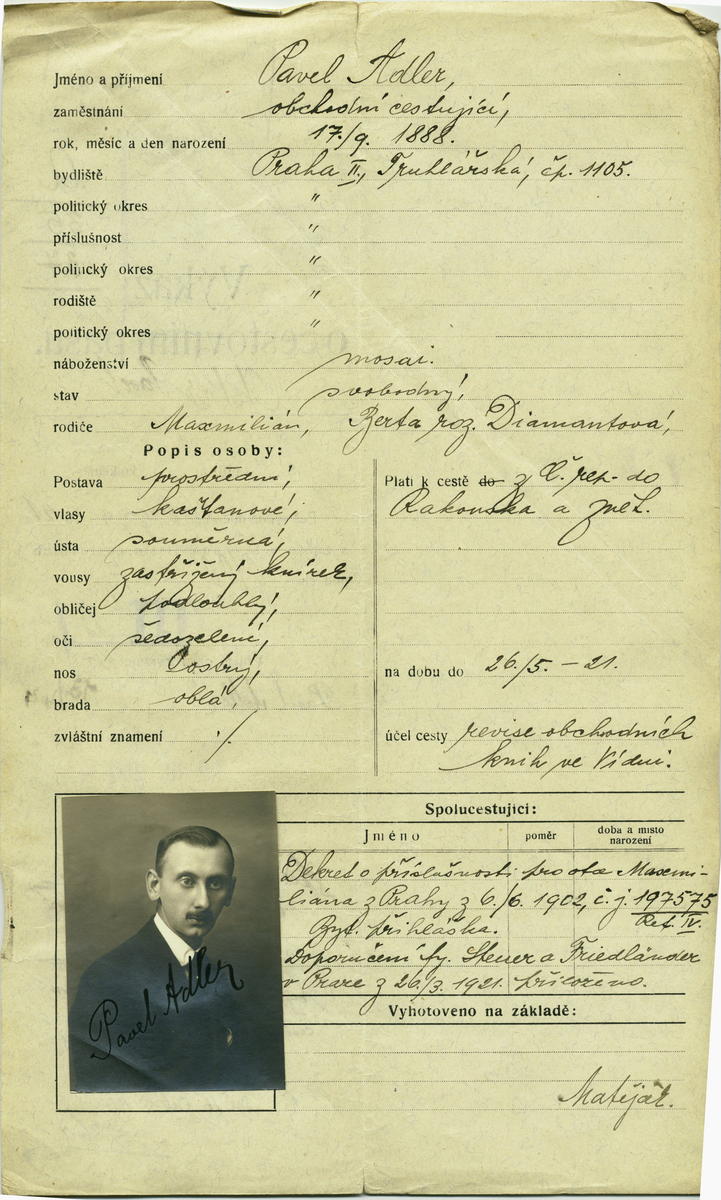 Jméno a příjmení Pavel Adler,
zaměstnání obchodní cestující,
rok, měsíc a den narození 17./9. 1888.
bydliště Praha II., Truhlářská, čp. 1105.
politický okres "
příslušnost "
politický okres "
rodiště "
politický okres "
náboženství mosai.
stav svobodný,
rodiče Maxmilián, Berta roz. Diamantová,
Popis osoby:
Postava prostřední,
vlasy kaštanové,
ústa souměrná,
vousy zastřižený knírek,
obličej podlouhlý,
oči šedozelení,
nos ostrý,
brada oblá,
zvláštní znamení ./.
Platí k cestě do z Č. rep. do
Rakouska a zpět.
na dobu do 26./5. – 21.
účel cesty revise obchodních
knih ve Vídni.
Spolucestující:
Jméno poměr doba a místo narození
Dekret o příslušnosti pro otce Maxmi-
liána z Prahy z 6./6. 1902, č. j. 197575
Ref. IV.
Byt. přihláška.
Doporučení fy. Steuer a Friedländer
v Praze z 26./3. 1921. přiloženo.
Vyhotoveno na základě:
Matějář.
Pavel Adler